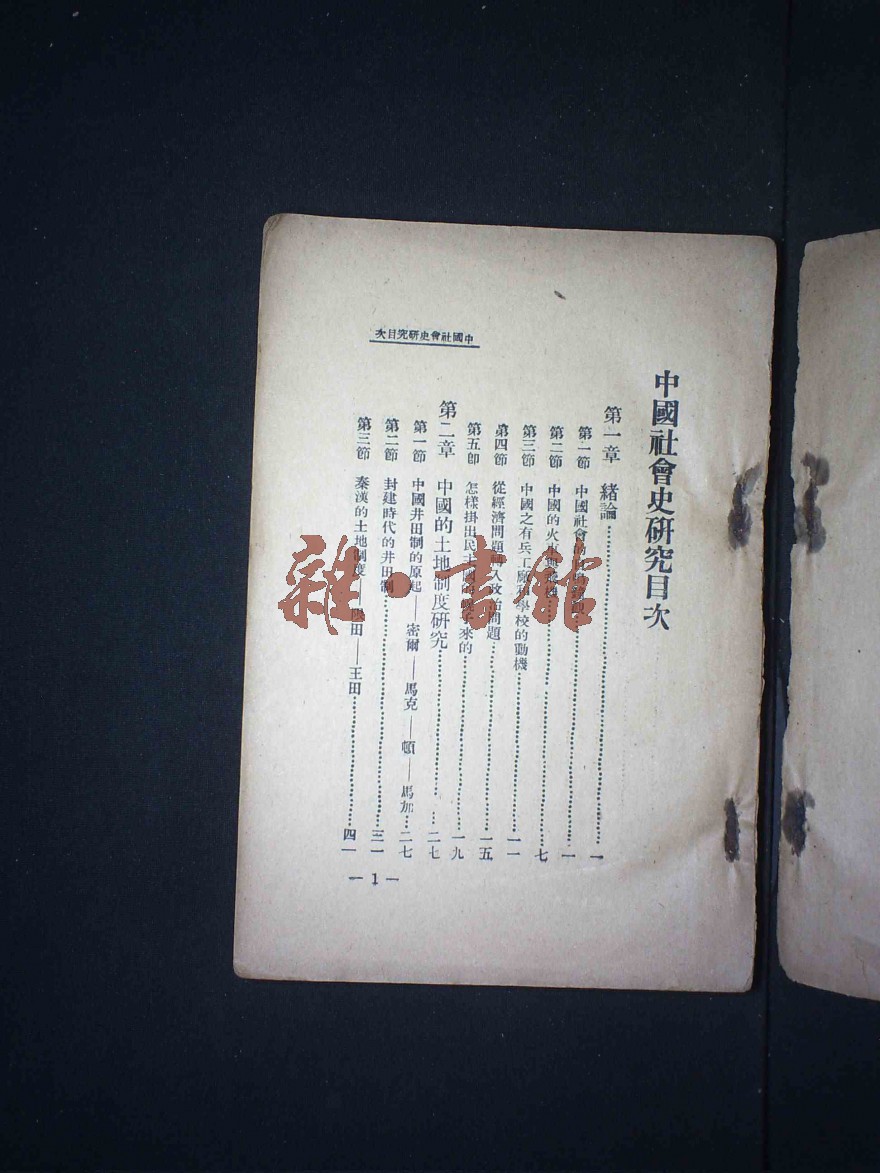 中國社會史研究目次
中國社會史研究目次
第一章 緒論 一
第一節 中國社會的 一
第二節 中國的火 七
第三節 中國之有兵工廠 學校的動機 一一
第四節 從經濟問題轉入政治問題 一五
第五節 怎樣掛出民 來的 一九
第二章 中國的土地制度研究 二七
第一節 中國井田制的原起——密爾——馬克——頓——馬加 二七
第二節 封建時代的井田制 三一
第三節 秦漢的土地制度—— 田——王田 四一
—1—
雜·書館